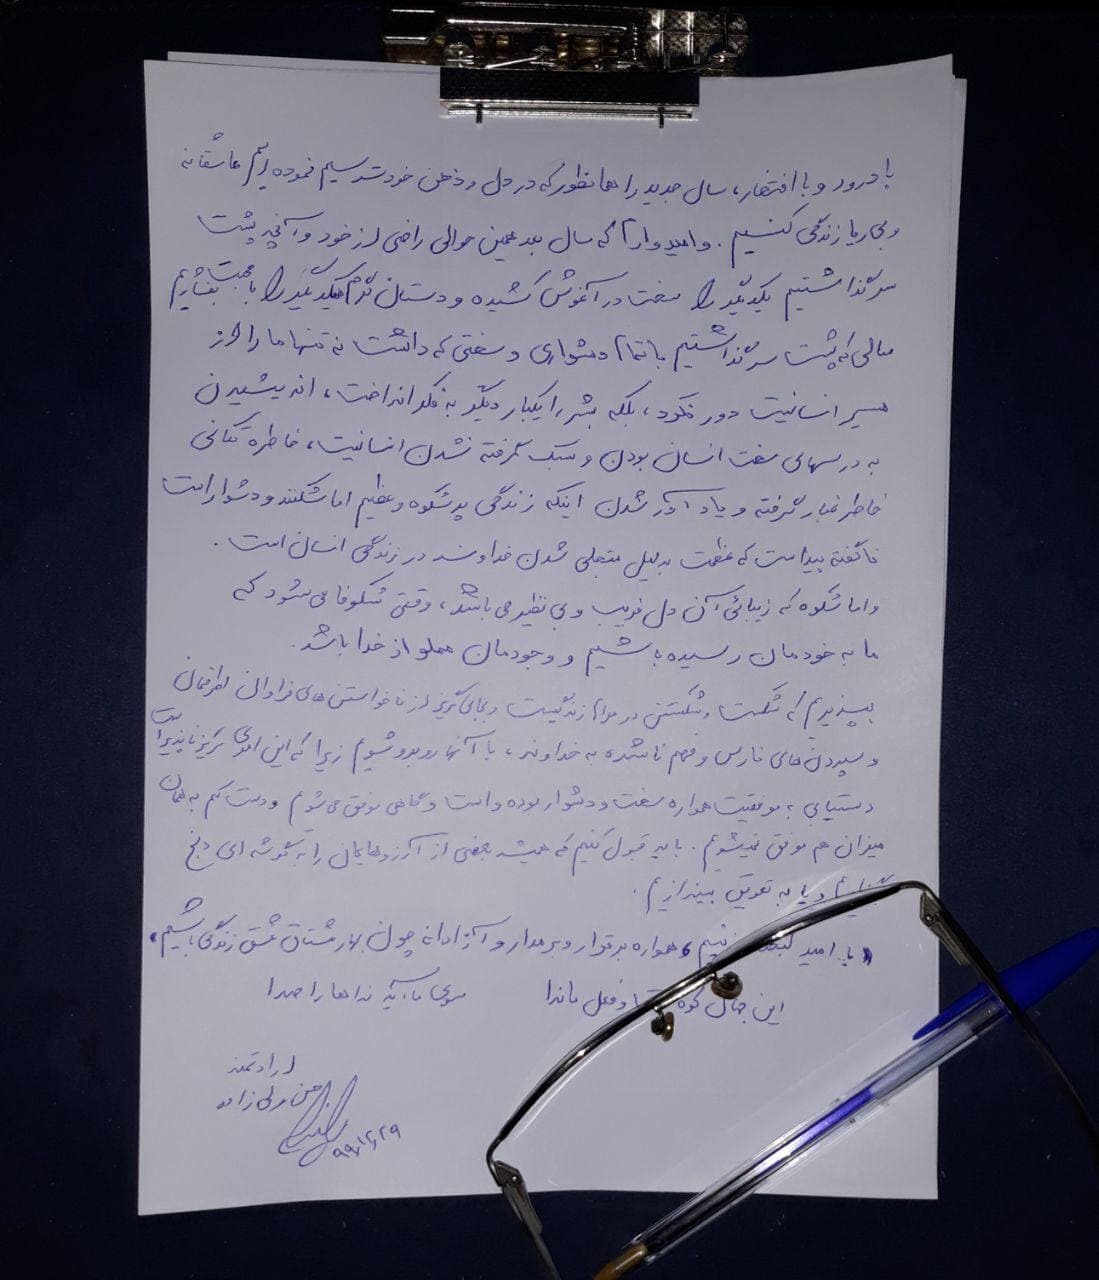 با درود و با افتخار، سال جدید را همانطور که در دل و ذهن خود ترسیم نموده ایم عاشقانه
و بی ریا زندگی کنیم. و امیدوارم که سال بعد همین حوالی راضی از خود و آنچه پشت
سر گذاشتیم یکدیگر را سخت در آغوش کشیده و دستان گرم یکدیگر را با محبت بفشاریم
سالی که پشت سر گذاشتیم با تمام دشواری و سختی که داشت نه تنها ما را از
مسیر انسانیت دور نکرد، بلکه بشر را یکبار دیگر به فکر انداخت، اندیشیدن
به درسهای سخت انسان بودن و سبک گرفته نشدن انسانیت، خاطره تکانی
خاطر غبار گرفته و یادآور شدن اینکه زندگی پرشکوه و عظیم اما شکننده و دشوار است
ناگفته پیداست که عظمت بدلیل متجلی شدن خداوند در زندگی انسان است.
و اما شکوه که زیبائی آن دل فریب و بی نظیر می باشد، وقتی شکوفا می شود که
ما به خودمان رسیده باشیم و وجودمان مملو از خدا باشد.
بپذیریم که شکست و شکستنی در مدام زندگیست و بجای گریز از ناخواستن های فراوان اطرافمان
و سپردن های نارس و فهم ناشده به خداوند، با آنها روبرو شویم زیرا که این امری گریز ناپذیر است
دستیابی به موفقیت همواره سخت و دشوار بوده و است و گاهی موفق می شویم و دست کم به همان
میزان هم موفق نمیشویم. باید قبول کنیم که همیشه بعضی از آرزوهایمان را به گوشه ای دنج
و یا به تعویق بیندازیم.
با امید همواره برقرار و برمدار و آزادانه چون بهار مشتاق عشق زندگی باشیم
این جهان کوه و فعل ما ندا
سوی ما آید نداها را صدا
ارادتمند
حسن ولی زاده
۹۹/۱۲/۲۹